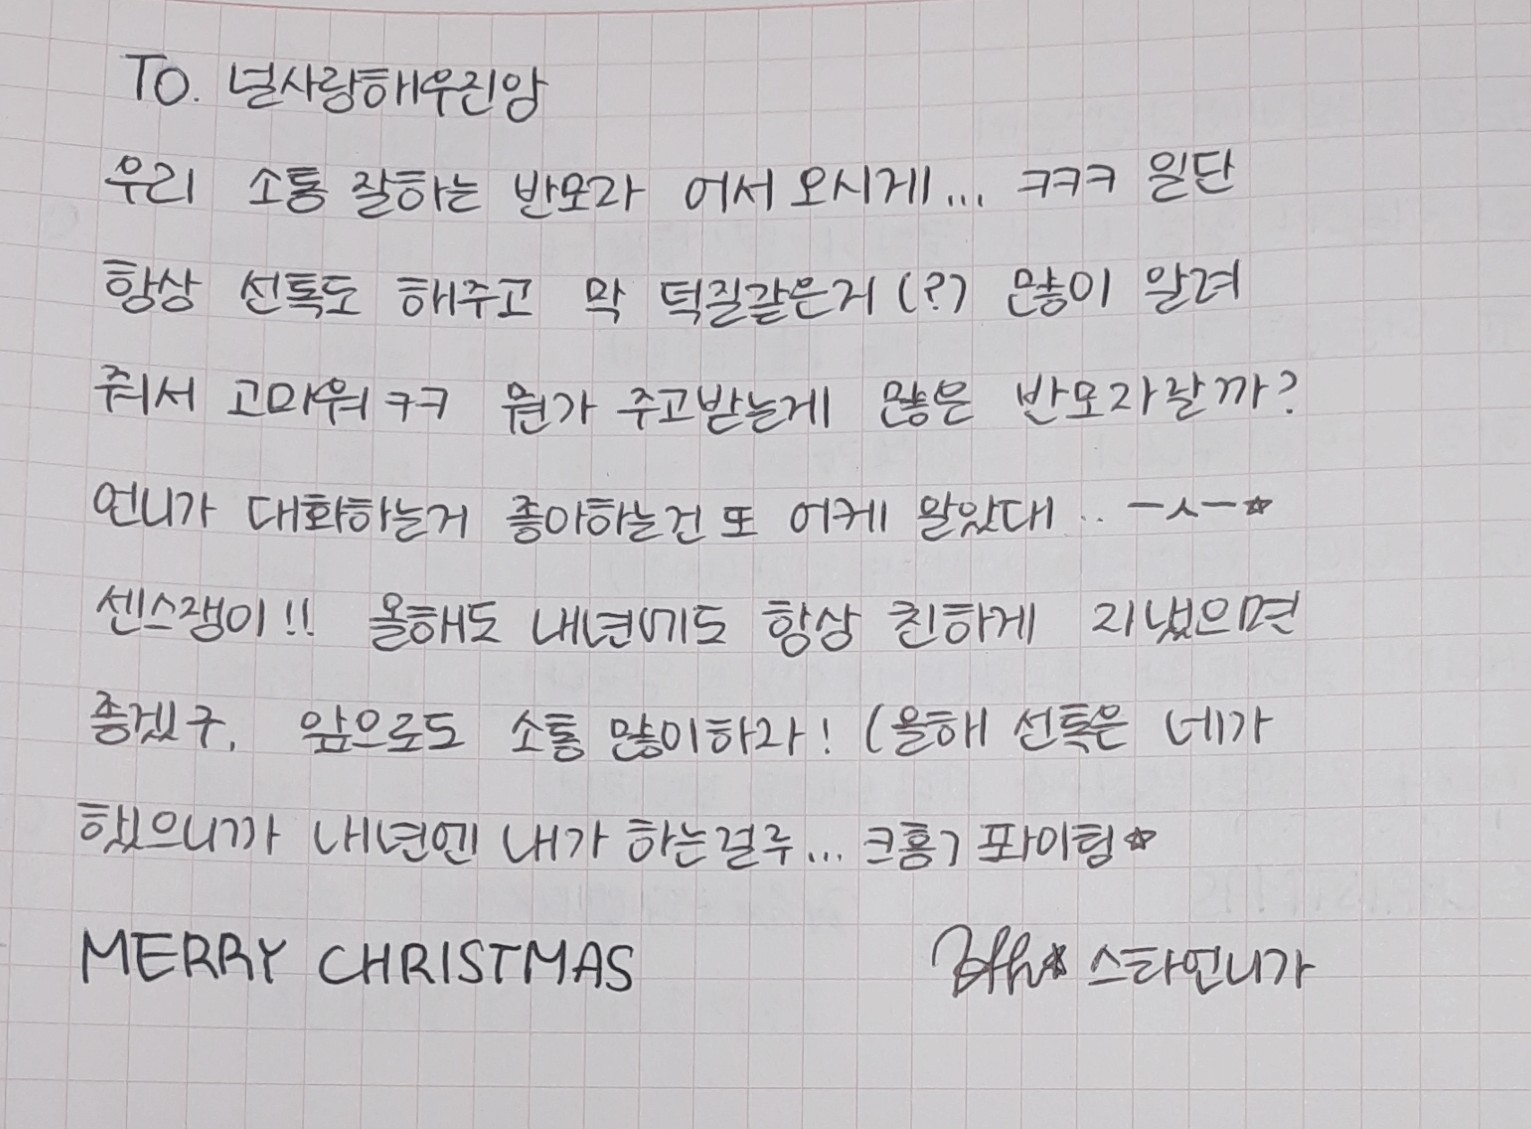 TO. 널사랑해우진앙
우리 소통 잘하는 반모라 어서오시게... ㅋㅋㅋ 일단
항상 선톡도 해주고 막 덕질같은거(?) 많이 알려
줘서 고마워ㅋㅋ 뭔가 주고받는게 많은 반모자랄까?
언니가 대화하는거 좋아하는건 또 어케 알았대.. ㅡㅅㅡ☆
센스쟁이!! 올해도 내년에도 항상 친하게 지냈으면
좋겠구, 앞으로도 소통 많이하자! (올해 선톡은 네가
했으니까 내년엔 내가 하는걸루... 크흥) 퐈이팅☆
MERRY CHRISTMAS
스타언니가